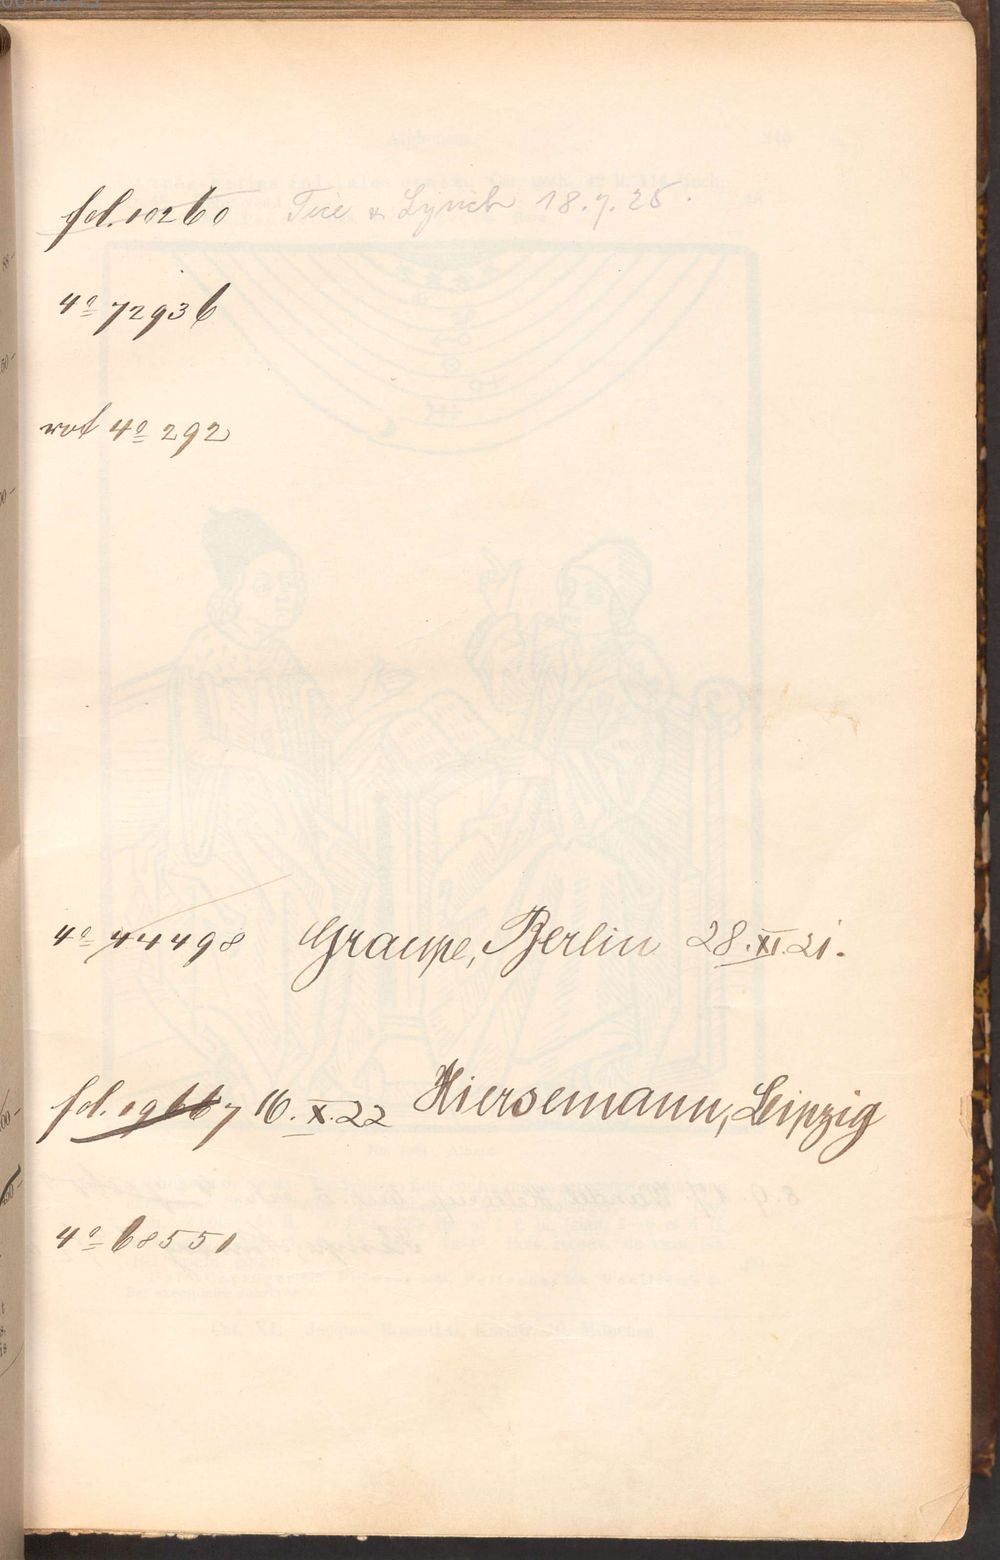 fol. 10260 Tice & Lynch 18.7.25.
4º 72936
rot 4º 292
4º 44498 Graupe, Berlin 28.XI.21.
fol. 19667 16.X.22 Hiersemann, Leipzig
4º 68551